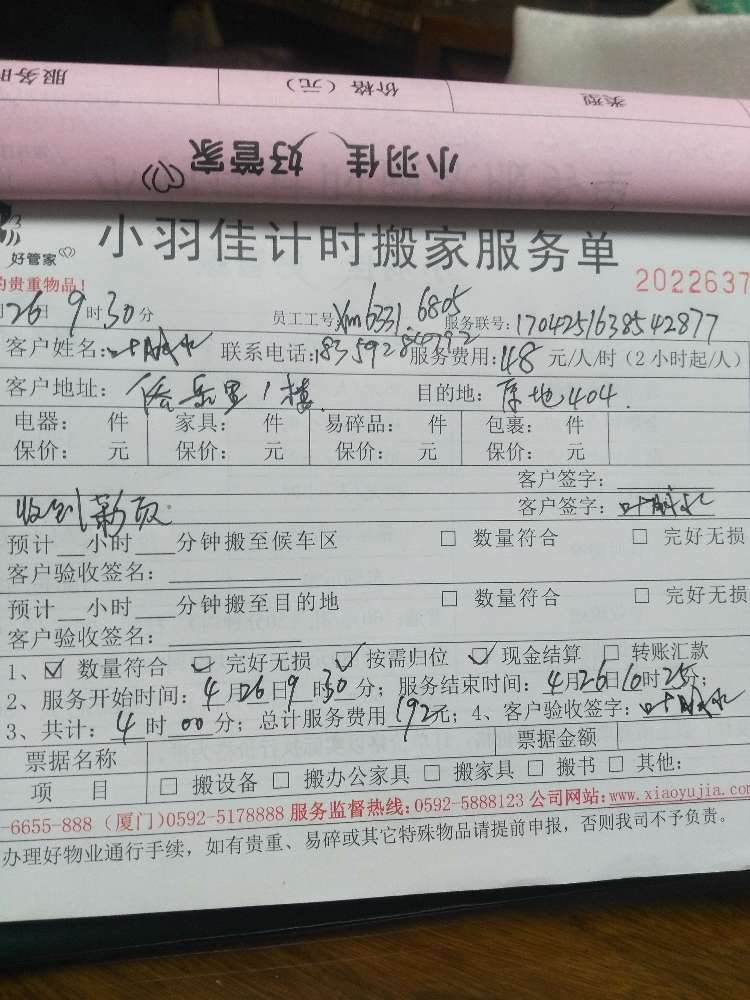 服务时
价格（元）
类型
小羽佳 好管家
好管家
小羽佳计时搬家服务单
的贵重物品！
2022637
月26日9时30分
员工工号：Xm6331.6805
服务联号：1704251638542877
客户姓名： 联系电话： 服务费用：48元/人/时（2小时起/人）
客户地址： 里1楼 目的地：404.
电器： 件 家具： 件 易碎品： 件 包裹： 件
保价： 元 保价： 元 保价： 元 保价： 元
客户签字：
客户签字：
预计__小时___分钟搬至候车区 □ 数量符合 □ 完好无损
客户验收签名：
预计__小时___分钟搬至目的地 □ 数量符合 □ 完好无损
客户验收签名：
1、☑ 数量符合 ☑ 完好无损 ☑ 按需归位 ☑ 现金结算 □ 转账汇款
2、服务开始时间：4月26日9时30分；服务结束时间：4月26日10时25分；
3、共计：4时00分；总计服务费用192元；4、客户验收签字：
票据名称 票据金额
项 目 □ 搬设备 □ 搬办公家具 □ 搬家具 □ 搬书 □ 其他：
-6655-888（厦门）0592-5178888 服务监督热线：0592-5888123 公司网站：www.xiaoyujia.com
办理好物业通行手续，如有贵重、易碎或其它特殊物品请提前申报，否则我司不予负责。